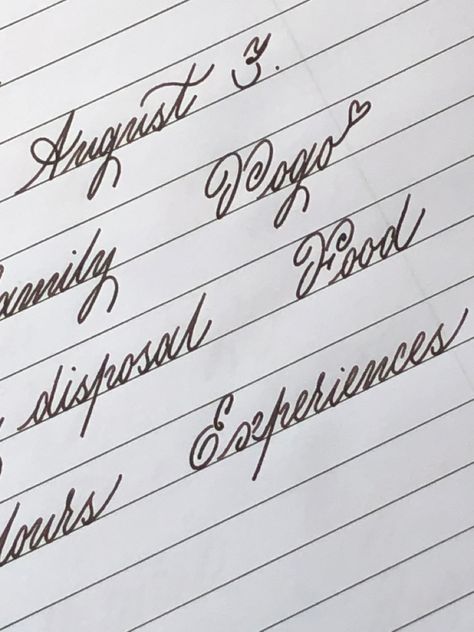 August 3.
amily Pogo
disposal Food
lours Experiences